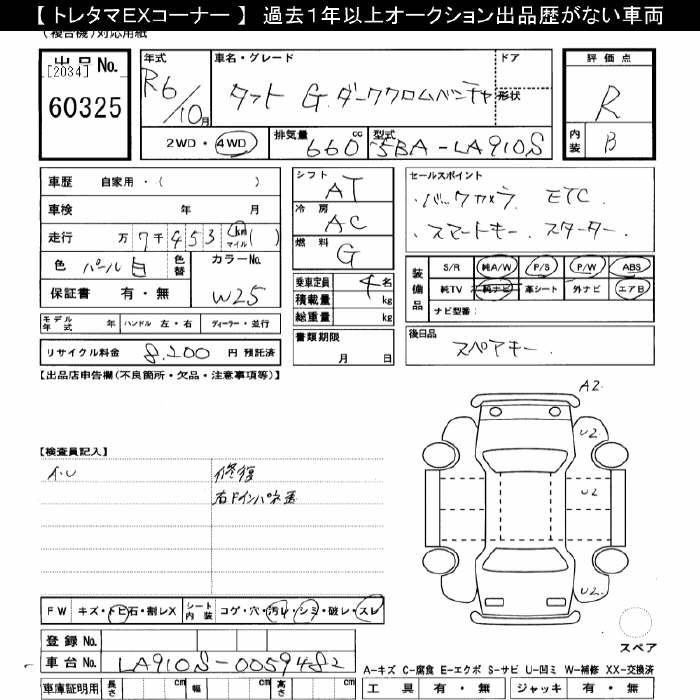 【トレタマEXコーナー】 過去1年以上オークション出品歴がない車両
(複合機)対応用紙
出品 No.
[2034]
60325
年式
R6/10月
車名・グレード
ドア
形状
タント G ダーククロムベンチャ
評価点
R
内装
B
2WD・4WD
排気量 cc
660
型式
5BA-LA910S
車歴 自家用・( )
車検 年 月
走行 万 7千453 km マイル ( )
色 パール白 色替
カラーNo.
W25
保証書 有・無
モデル年式 年 ハンドル 左・右 ディーラー・並行
リサイクル料金 8,200 円 預託済
シフト
AT
冷房
AC
燃料
G
乗車定員 4名
積載量 kg
総重量 kg
書類期限
月 日
セールスポイント
・バックカメラ ETC
・スマートキー スターター
装備品
S/R 純A/W P/S P/W ABS
純TV 純ナビ 革シート 外ナビ エアB
ナビ型番:
後日品
スペアキー
【出品店申告欄(不良箇所・欠品・注意事項等)】
【検査員記入】
修復
A2
U2
U2
U2
スペア
FW キズ・トビ石・割レX シート内装 コゲ・穴・汚レ・シミ・破レ・スレ
登録 No.
車台 No. LA910S-0059482
車庫証明用 長さ cm 幅 cm 高さ cm
A-キズ C-腐食 E-エクボ S-サビ U-凹ミ W-補修 XX-交換済
工具 有・無 ジャッキ 有・無